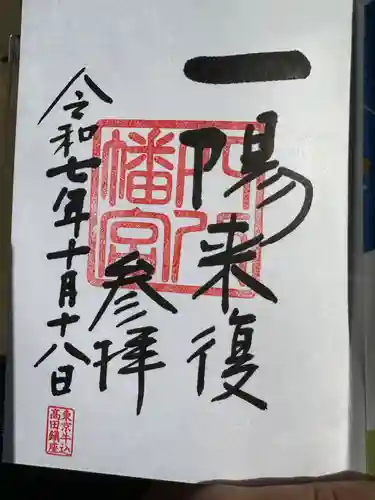 一陽来復
参拝
令和七年十月十八日
八幡宮
東京牛込
高田鎮座